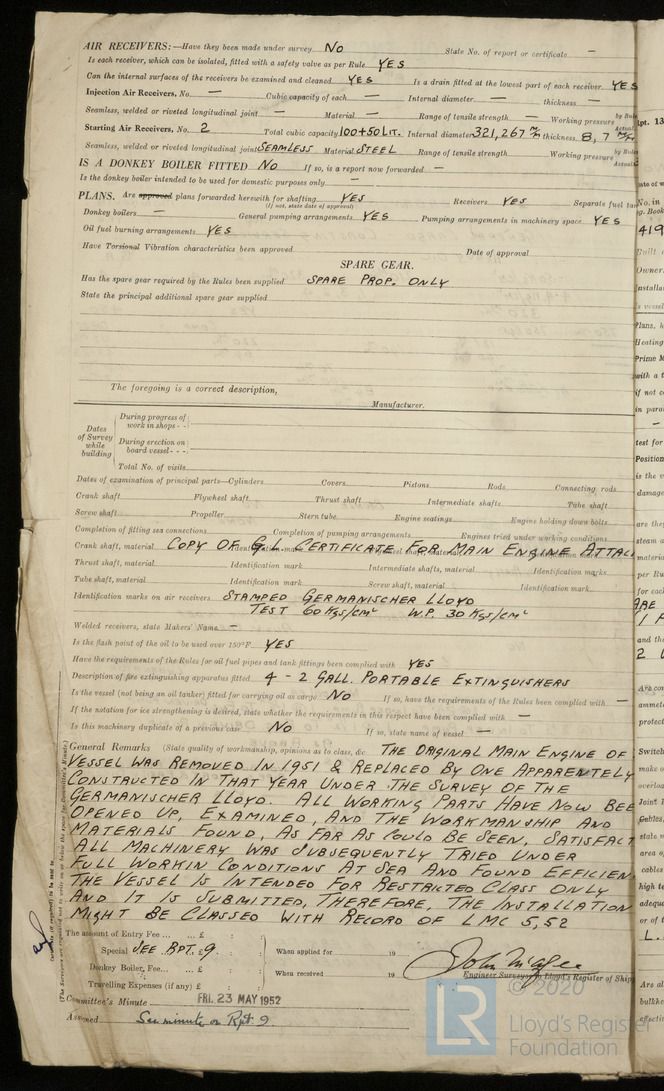 AIR RECEIVERS:—Have they been made under survey NO State No. of report or certificate —
Is each receiver, which can be isolated, fitted with a safety valve as per Rule YES
Can the internal surfaces of the receivers be examined and cleaned YES Is a drain fitted at the lowest part of each receiver YES
Injection Air Receivers, No. — Cubic capacity of each — Internal diameter — thickness —
Seamless, welded or riveted longitudinal joint — Material — Range of tensile strength — Working pressure by Rules Actual
Starting Air Receivers, No. 2 Total cubic capacity 100+50 LIT. Internal diameter 321,267 m/m thickness 8,7 m/m
Seamless, welded or riveted longitudinal joint SEAMLESS Material STEEL Range of tensile strength Working pressure by Rules Actual
IS A DONKEY BOILER FITTED NO If so, is a report now forwarded —
Is the donkey boiler intended to be used for domestic purposes only —
PLANS. Are approved plans forwarded herewith for shafting YES Receivers YES Separate fuel
(If not, state date of approval)
Donkey boilers — General pumping arrangements YES Pumping arrangements in machinery space YES
Oil fuel burning arrangements YES
Have Torsional Vibration characteristics been approved Date of approval
SPARE GEAR.
Has the spare gear required by the Rules been supplied SPARE PROP. ONLY
State the principal additional spare gear supplied
The foregoing is a correct description,
Manufacturer.
Dates of Survey while building
During progress of work in shops - -
During erection on board vessel - - -
Total No. of visits
Dates of examination of principal parts—Cylinders Covers Pistons Rods Connecting rods
Crank shaft Flywheel shaft Thrust shaft Intermediate shafts Tube shaft
Screw shaft Propeller Stern tube Engine seatings Engine holding down bolts
Completion of fitting sea connections Completion of pumping arrangements Engines tried under working conditions
Crank shaft, material COPY OF G.L. CERTIFICATE FOR MAIN ENGINE ATTAC
Thrust shaft, material Identification mark Intermediate shafts, material Identification marks
Tube shaft, material Identification mark Screw shaft, material Identification mark
Identification marks on air receivers STAMPED GERMANISCHER LLOYD
TEST 60 Kgs/cm² W.P. 30 Kgs/cm²
Welded receivers, state Makers' Name —
Is the flash point of the oil to be used over 150°F. YES
Have the requirements of the Rules for oil fuel pipes and tank fittings been complied with YES
Description of fire extinguishing apparatus fitted 4 - 2 GALL. PORTABLE EXTINGUISHERS
Is the vessel (not being an oil tanker) fitted for carrying oil as cargo NO If so, have the requirements of the Rules been complied with —
If the notation for ice strengthening is desired, state whether the requirements in this respect have been complied with —
Is this machinery duplicate of a previous case NO If so, state name of vessel —
General Remarks (State quality of workmanship, opinions as to class, &c. THE ORIGINAL MAIN ENGINE OF
VESSEL WAS REMOVED IN 1951 & REPLACED BY ONE APPARENTLY
CONSTRUCTED IN THAT YEAR UNDER THE SURVEY OF THE
GERMANISCHER LLOYD. ALL WORKING PARTS HAVE NOW BEE
OPENED UP, EXAMINED, AND THE WORKMANSHIP AND
MATERIALS FOUND, AS FAR AS COULD BE SEEN, SATISFACT
ALL MACHINERY WAS SUBSEQUENTLY TRIED UNDER
FULL WORKIN CONDITIONS AT SEA AND FOUND EFFICIEN
THE VESSEL IS INTENDED FOR RESTRICTED CLASS ONLY
AND IT IS SUBMITTED, THEREFORE, THE INSTALLATION
MIGHT BE CLASSED WITH RECORD OF LMC 5,52
The amount of Entry Fee ... ... £ : :
Special SEE RPT. 9. When applied for 19
Donkey Boiler, Fee... ... £ : : When received 19
Travelling Expenses (if any) £ : :
Engineer Surveyor to Lloyd's Register of Ship
Committee's Minute FRI. 23 MAY 1952
Assigned See minute on Rpt. 9.
© 2020
LR
Lloyd's Register
Foundation